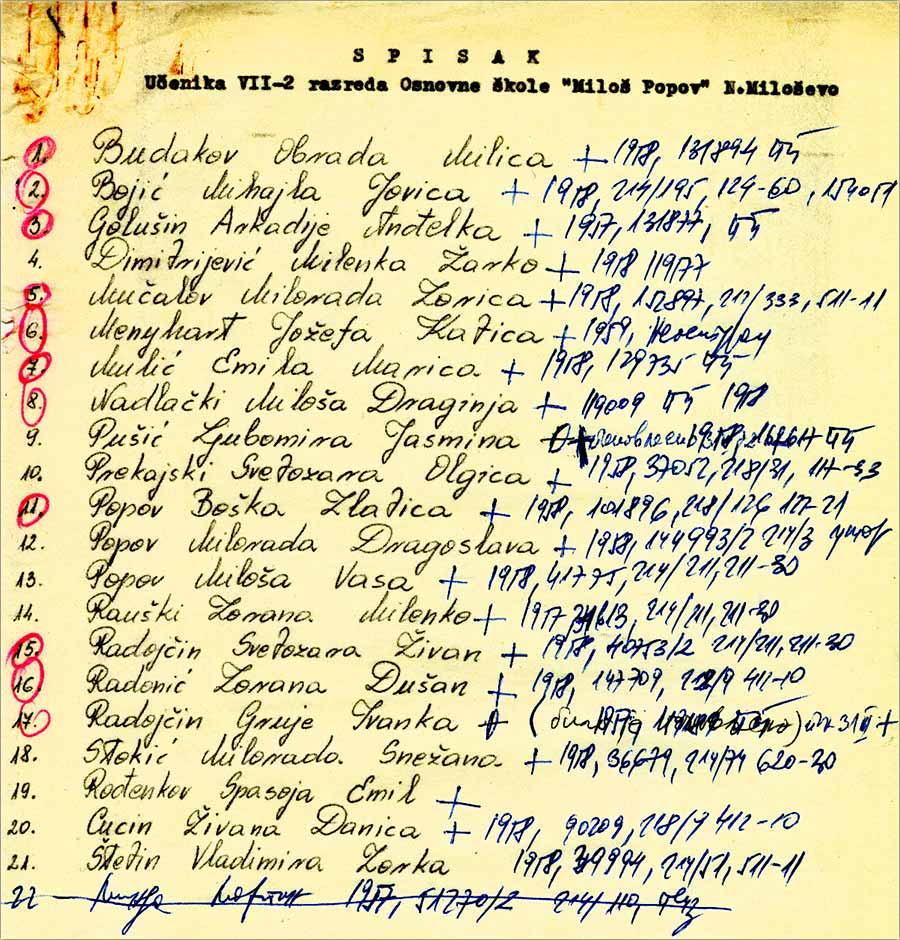 S P I S A K
Učenika VII-2 razreda Osnovne škole "Miloš Popov" N.Miloševo
1. Budakov Obrada Milica + 1958, 131894
2. Bojić Mihajla Jovica + 1958, 214/195, 124-60, 154051
3. Golušin Arkadije Anđelka + 1957, 131877,
4. Dimitrijević Milenka Žarko + 1958 11977
5. Mučalov Milorada Zorica + 1958, 152897, 217/333, 511-11
6. Menyhart Jožefa Katica + 1959,
7. Milić Emila Marica + 1958, 129735
8. Nadlački Miloša Draginja + 119009 1958
9. Pušić Ljubomira Jasmina
10. Prekajski Svetozara Olgica + 1958, 37052, 218/31, 117-33
11. Popov Boška Zlatica + 1958, 101896, 218/126 127-21
12. Popov Milorada Dragoslava + 1958, 144993/2 214/3
13. Popov Miloša Vasa + 1958, 41775, 214/211, 211-30
14. Rauški Zorana Milenko + 1957 214/211, 211-30
15. Radojčin Svetozara Živan + 1958, 40753/2 211/211, 211-30
16. Radonić Zorana Dušan + 1958, 147709, 411-10
17. Radojčin Gruje Ivanka +
18. Stokić Milorada Snežana + 1958, 36679, 214/74 620-30
19. Rotenkov Spasoja Emil +
20. Cucin Živana Danica + 1958, 90209, 218/9 412-10
21. Štetin Vladimira Zorka 1958, 39994, 217/51, 511-11
22 1957, 51270/2 214/110,